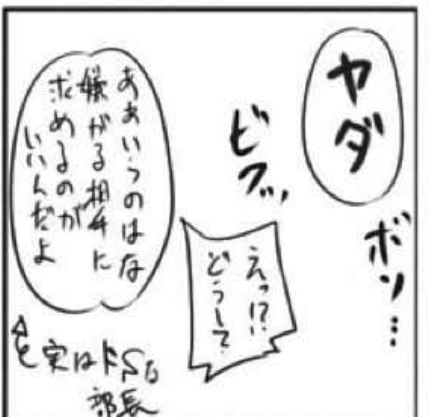 ヤダ
ボソ…
ビクッ
えっ!?
どうして
ああいうのはな
嫌がる相手に
求めるのが
いいんだよ
と実はドSな
部長